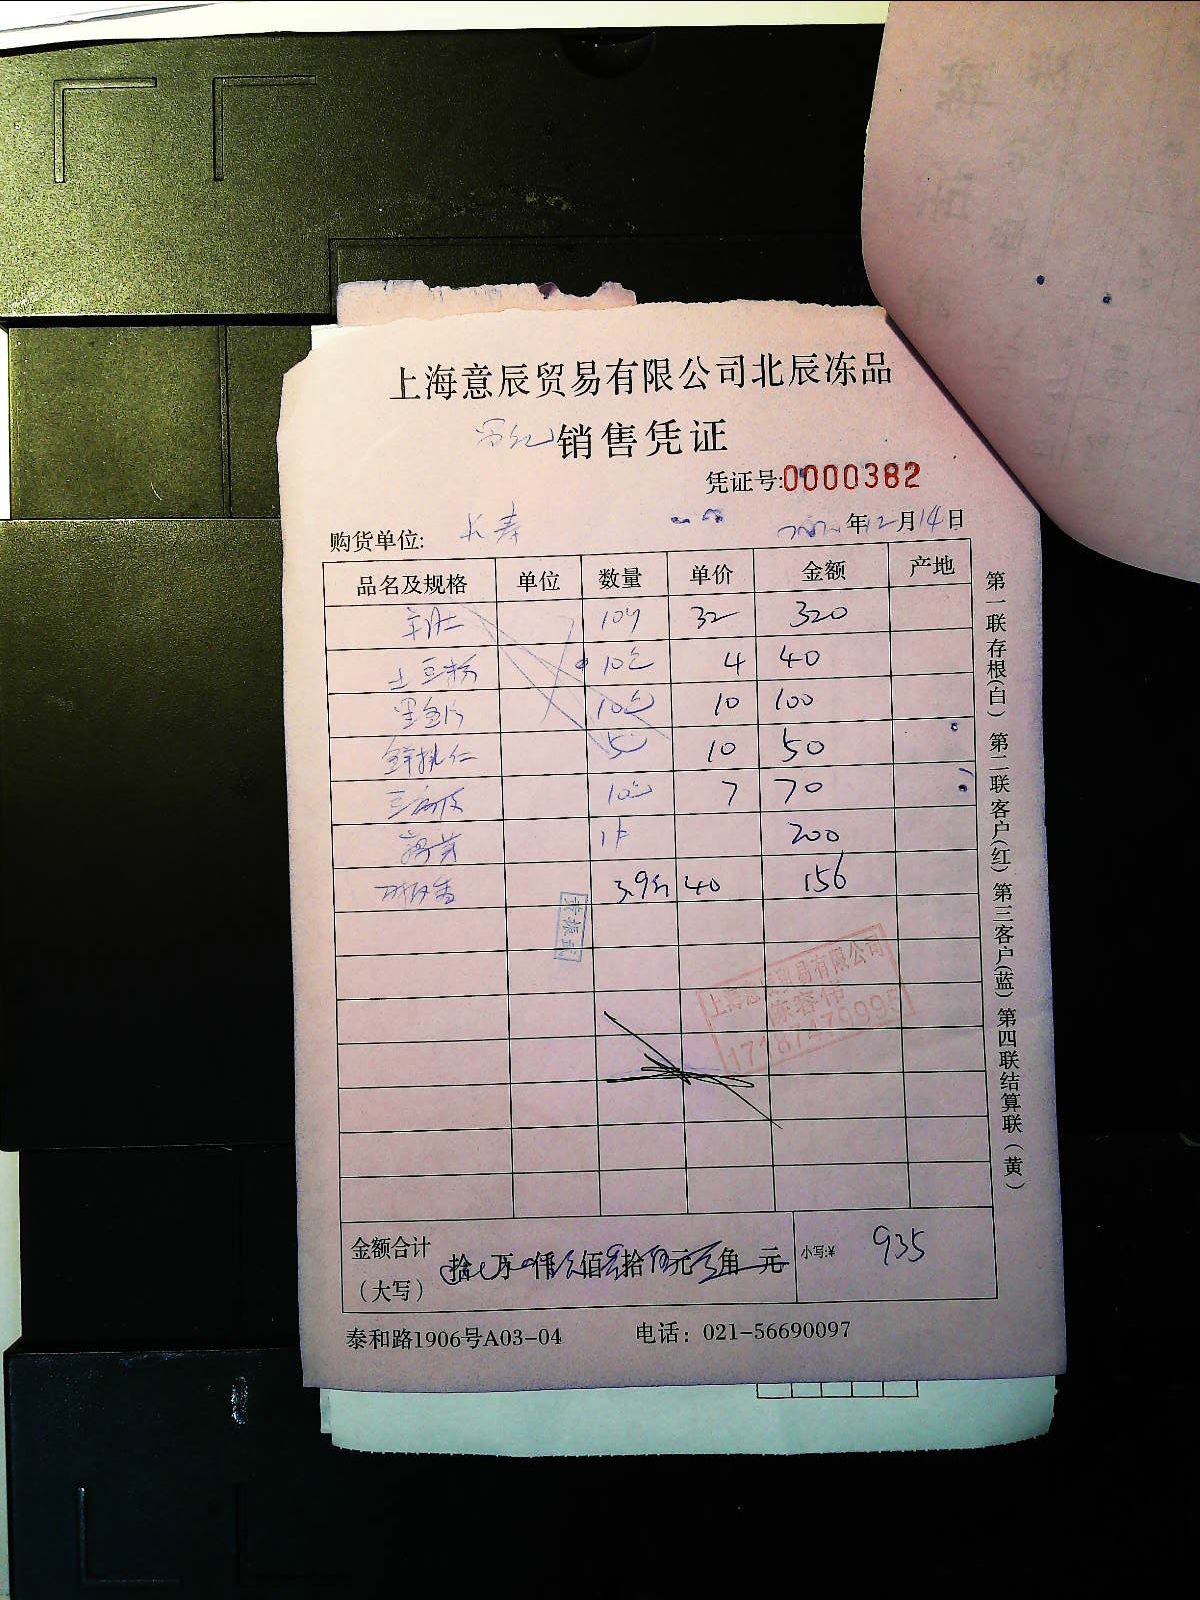 上海意辰贸易有限公司北辰冻品
销售凭证
凭证号:0000382
购货单位: 长寿
年12月14日
品名及规格 单位 数量 单价 金额 产地
羊肚 10 32 320
土豆粉 10包 4 40
墨鱼片 10包 10 100
鲜桃仁 5 10 50
10包 7 70
1件 200
3.9斤 40 156
上海意辰贸易有限公司
17187479995
金额合计
(大写)
拾 万 仟 佰 拾 元 角 元
小写:¥ 935
泰和路1906号A03-04 电话: 021-56690097
第一联存根(白) 第二联客户(红) 第三客户(蓝) 第四联结算联(黄)